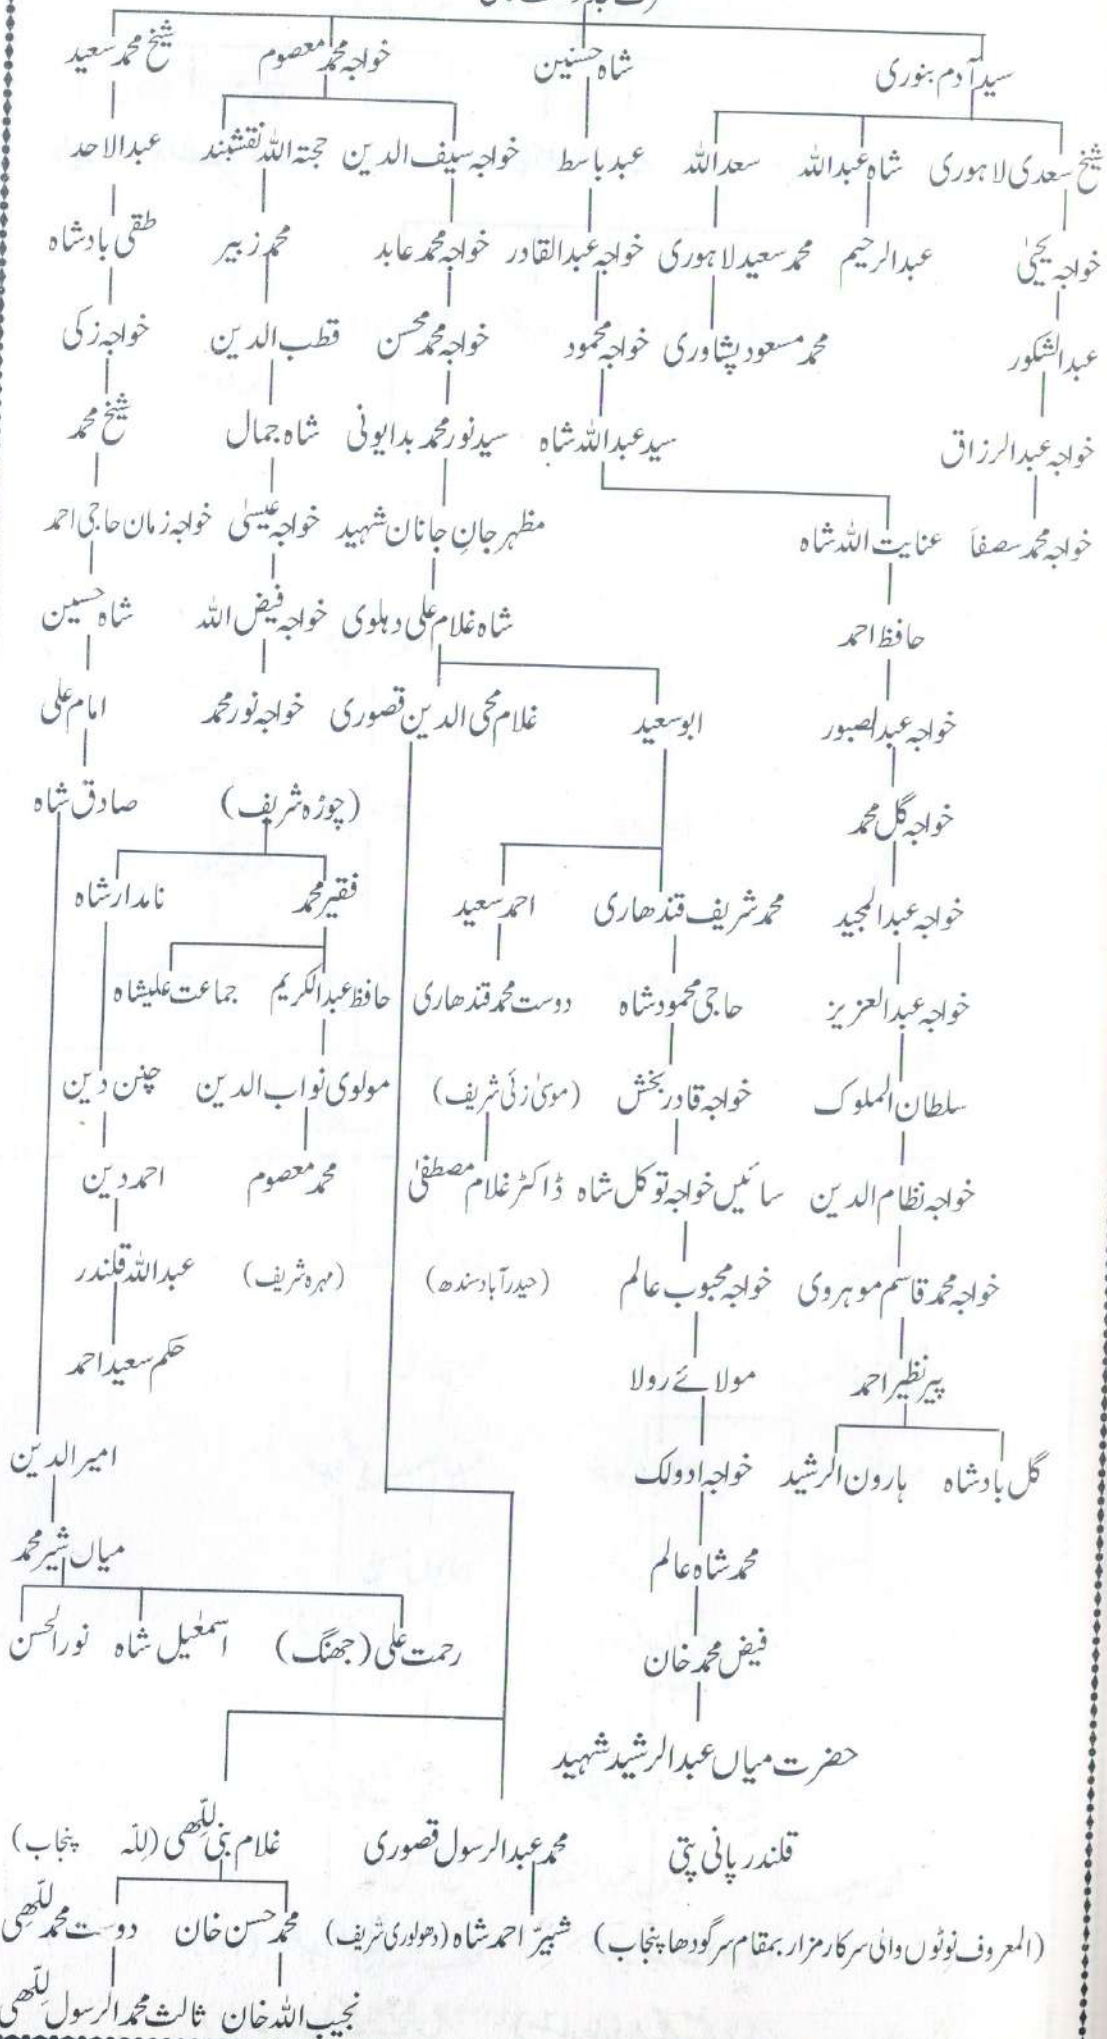 شیخ محمد سعید خواجہ محمد معصوم شاہ حسین سید آدم بنوری
شیخ سعدی لاہوری شاہ عبداللہ سعد اللہ عبد باسط خواجہ سیف الدین حجتہ اللہ نقشبند عبدالاحد
خواجہ یحییٰ عبدالرحیم محمد سعید لاہوری خواجہ عبدالقادر خواجہ محمد عابد محمد زبیر طقی بادشاہ
عبدالشکور محمد مسعود پشاوری خواجہ محمود خواجہ محمد محسن قطب الدین خواجہ زکی
خواجہ عبدالرزاق سید عبداللہ شاہ سید نور محمد بدایونی شاہ جمال شیخ محمد
خواجہ محمد سصفاَ عنایت اللہ شاہ مظہر جانِ جانان شہید خواجہ عیسیٰ خواجہ زمان حاجی احمد
حافظ احمد شاہ غلام علی دہلوی خواجہ فیض اللہ شاہ حسین
خواجہ عبدالصبور ابو سعید غلام محی الدین قصوری خواجہ نور محمد امام علی
خواجہ گل محمد (چوڑہ شریف) صادق شاہ
خواجہ عبدالمجید محمد شریف قندھاری احمد سعید فقیر محمد نامدار شاہ
خواجہ عبدالعزیز حاجی محمود شاہ دوست محمد قندھاری حافظ عبدالکریم جماعت علیشاہ
سلطان الملوک خواجہ قادر بخش (موسیٰ زئی شریف) مولوی نواب الدین چنن دین
خواجہ نظام الدین سائیں خواجہ توکل شاہ ڈاکٹر غلام مصطفیٰ محمد معصوم احمد دین
خواجہ محمد قاسم موہروی خواجہ محبوب عالم (حیدرآباد سندھ) (مہرہ شریف) عبداللہ قلندر
پیر نظیر احمد مولائے رولا حکم سعید احمد
گل بادشاہ ہارون الرشید خواجہ ادولک امیر الدین
محمد شاہ عالم میاں شیر محمد
فیض محمد خان رحمت علی (جھنگ) اسمٰعیل شاہ نور الحسن
حضرت میاں عبدالرشید شہید
قلندر پانی پتی محمد عبدالرسول قصوری غلام بنی للّٰھی (للّٰہ پنجاب)
(المعروف نوٹوں والی سرکار مزار بمقام سرگودھا پنجاب) شبیرّ احمد شاہ (دھولوری شریف) محمد حسن خان دوست محمد للّٰھی
نجیب اللہ خان ثالث محمد الرسول للّٰھی